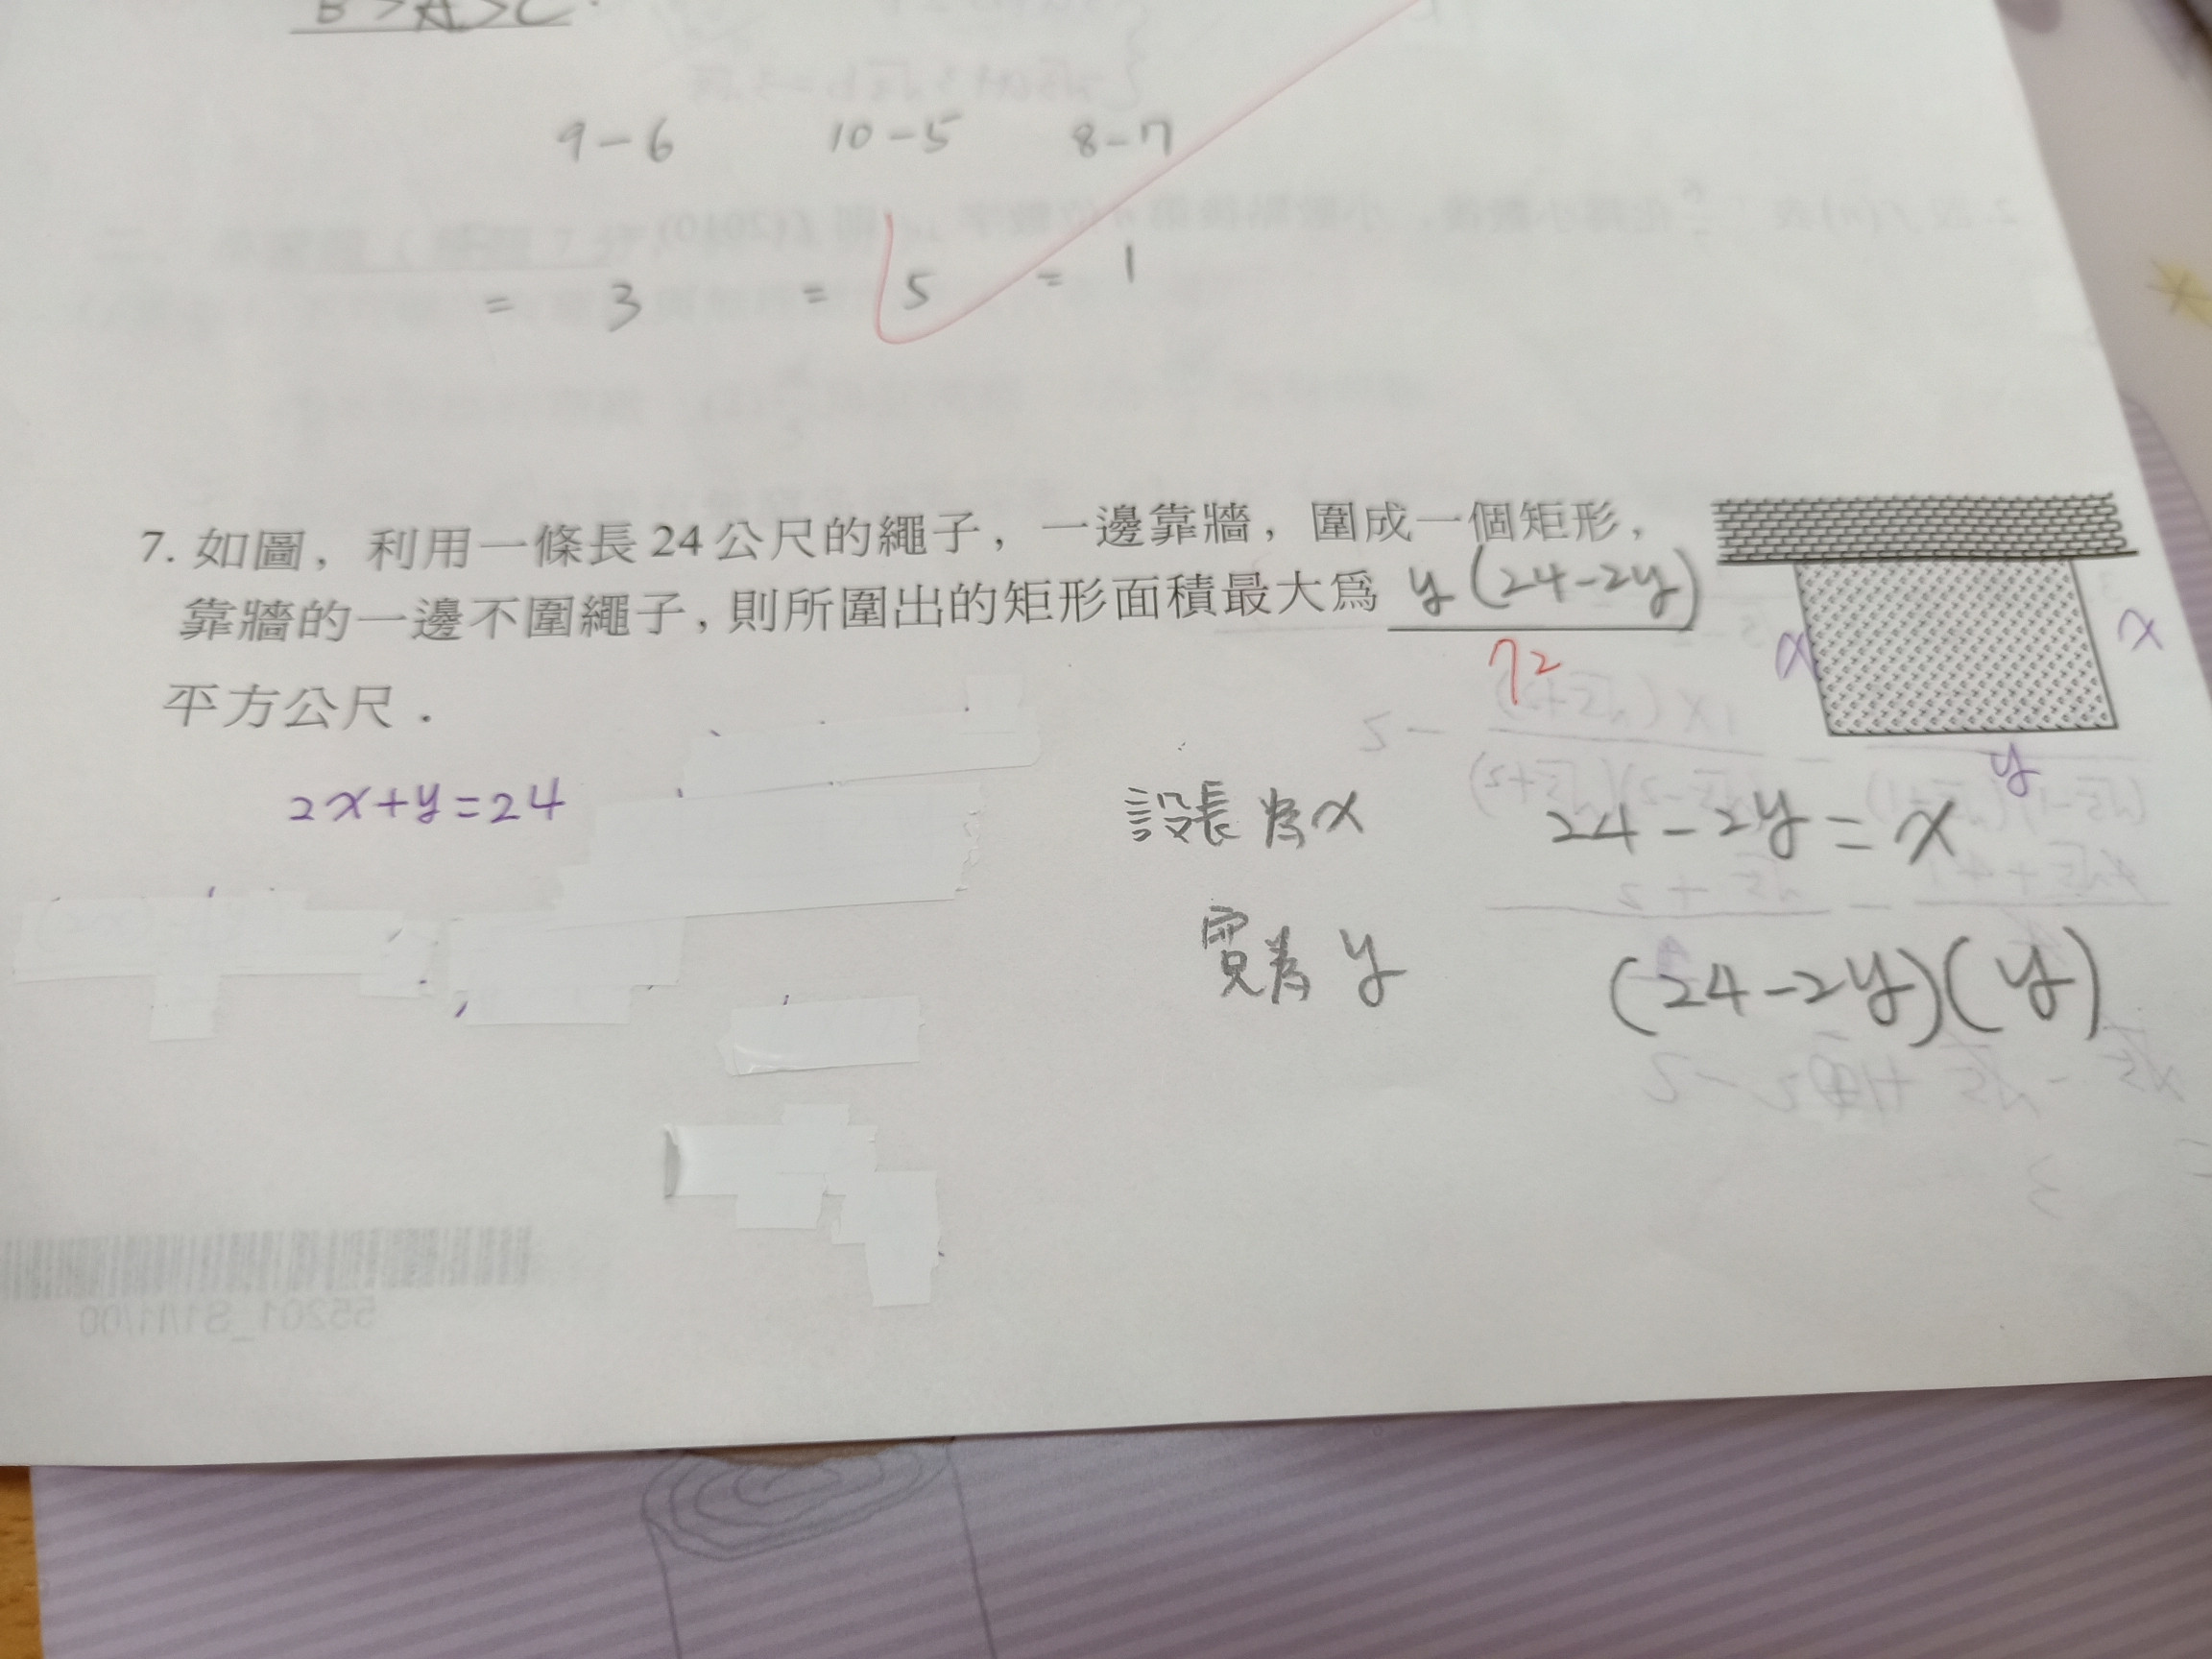 B>A>C
9-6 10-5 8-7
= 3 = 5 = 1
7. 如圖，利用一條長24公尺的繩子，一邊靠牆，圍成一個矩形，
靠牆的一邊不圍繩子，則所圍出的矩形面積最大爲 y(24-2y)
72
平方公尺．
x
x
y
2x+y=24
設長為x 24-2y=x
寬為y (24-2y)(y)